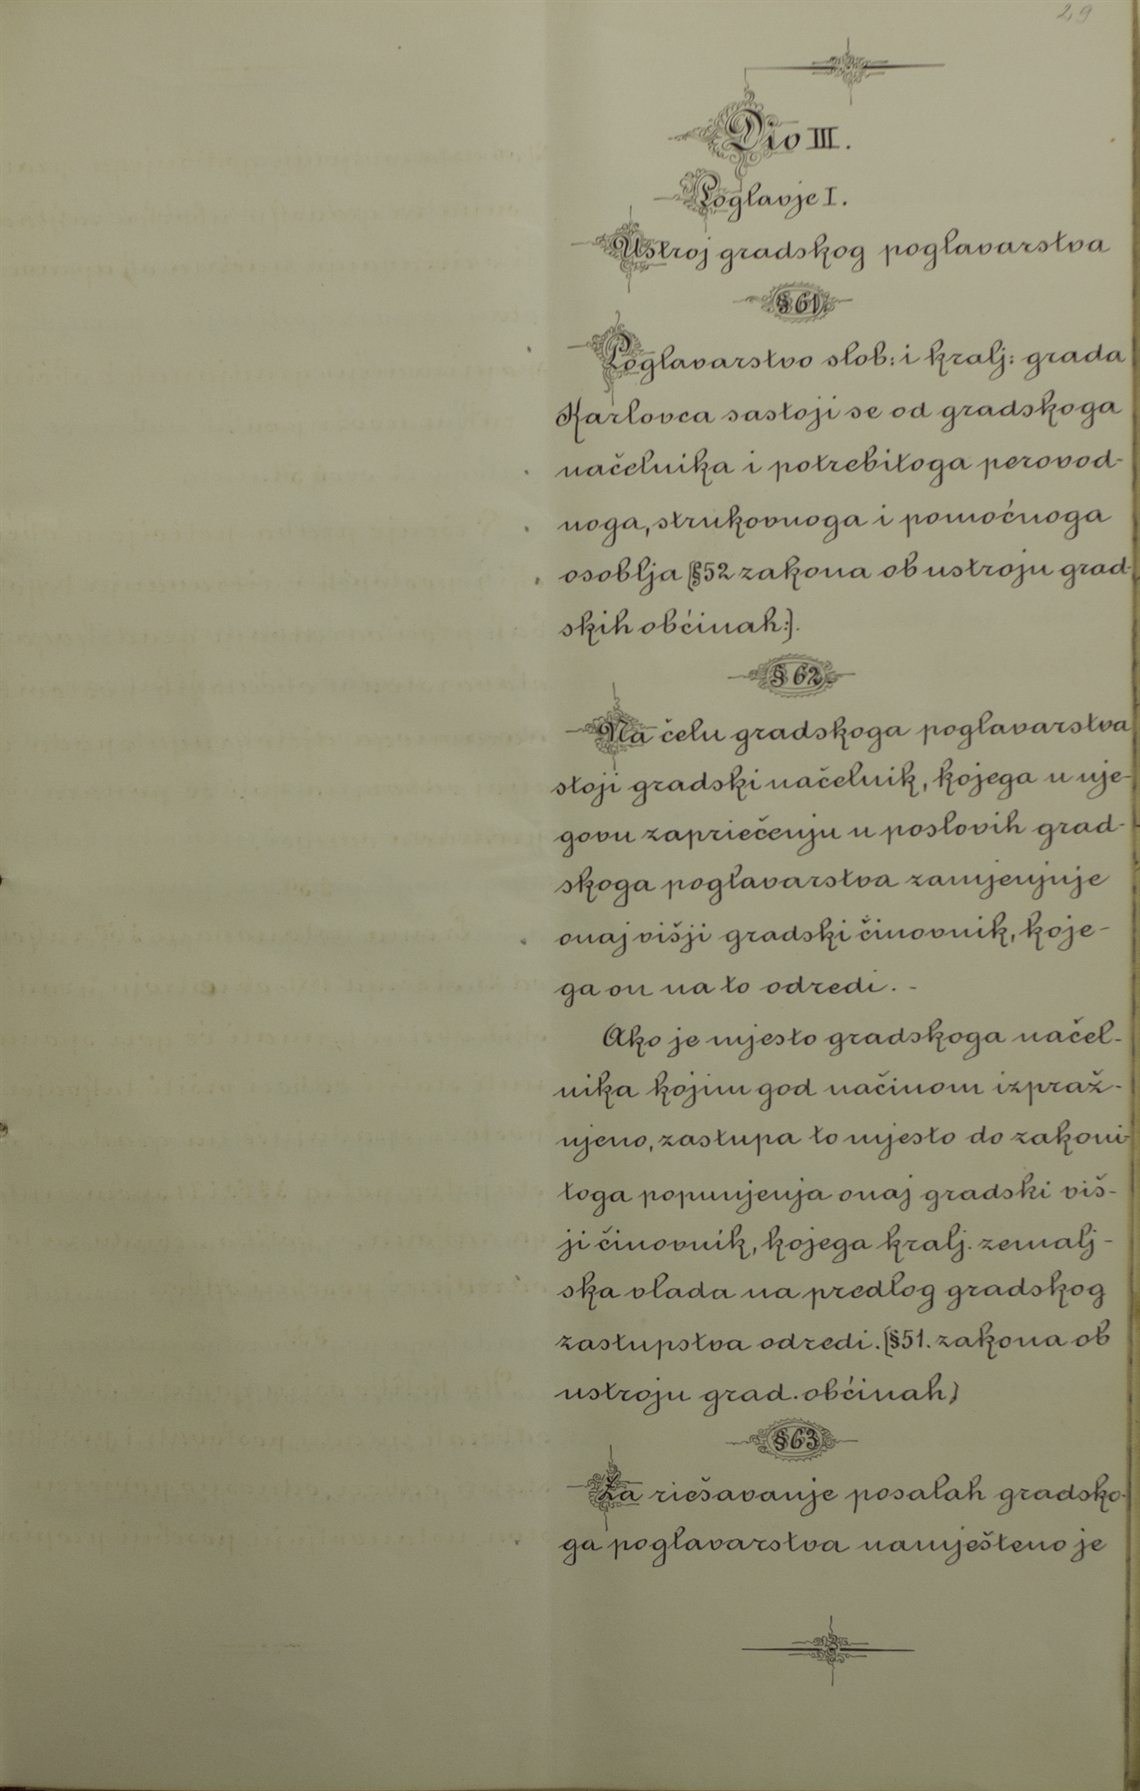 29
Dio III.
Poglavje I.
Ustroj gradskog poglavarstva
§ 61.
Poglavarstvo slob: i kralj: grada
Karlovca sastoji se od gradskoga
načelnika i potrebitoga perovod-
noga, strukovnoga i pomoćnoga
osoblja (§52 zakona ob ustroju grad-
skih obćinah:).
§ 62.
Na čelu gradskoga poglavarstva
stoji gradski načelnik, kojega u nje-
govu zapriečenju u poslovih grad-
skoga poglavarstva zamjenjuje
onaj višji gradski činovnik, koje-
ga on na to odredi. -
Ako je mjesto gradskoga načel-
nika kojim god načinom izpraž-
njeno, zastupa to mjesto do zakoni-
toga popunjenja onaj gradski viš-
ji činovnik, kojega kralj. zemalj-
ska vlada na predlog gradskog
zastupstva odredi. (§51. zakona ob
ustroju grad. obćinah)
§ 63.
Za riešavanje posalah gradsko-
ga poglavarstva namješteno je